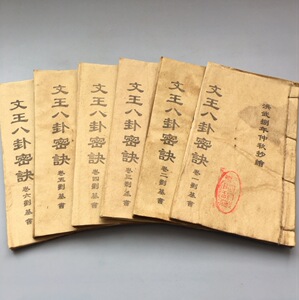 洪武年仲秋抄繪
文王八卦密訣
卷一劉基書
文王八卦密訣
卷二劉基書
文王八卦密訣
卷三劉基書
文王八卦密訣
卷四劉基書
文王八卦密訣
卷五劉基書
文王八卦密訣
卷六劉基書